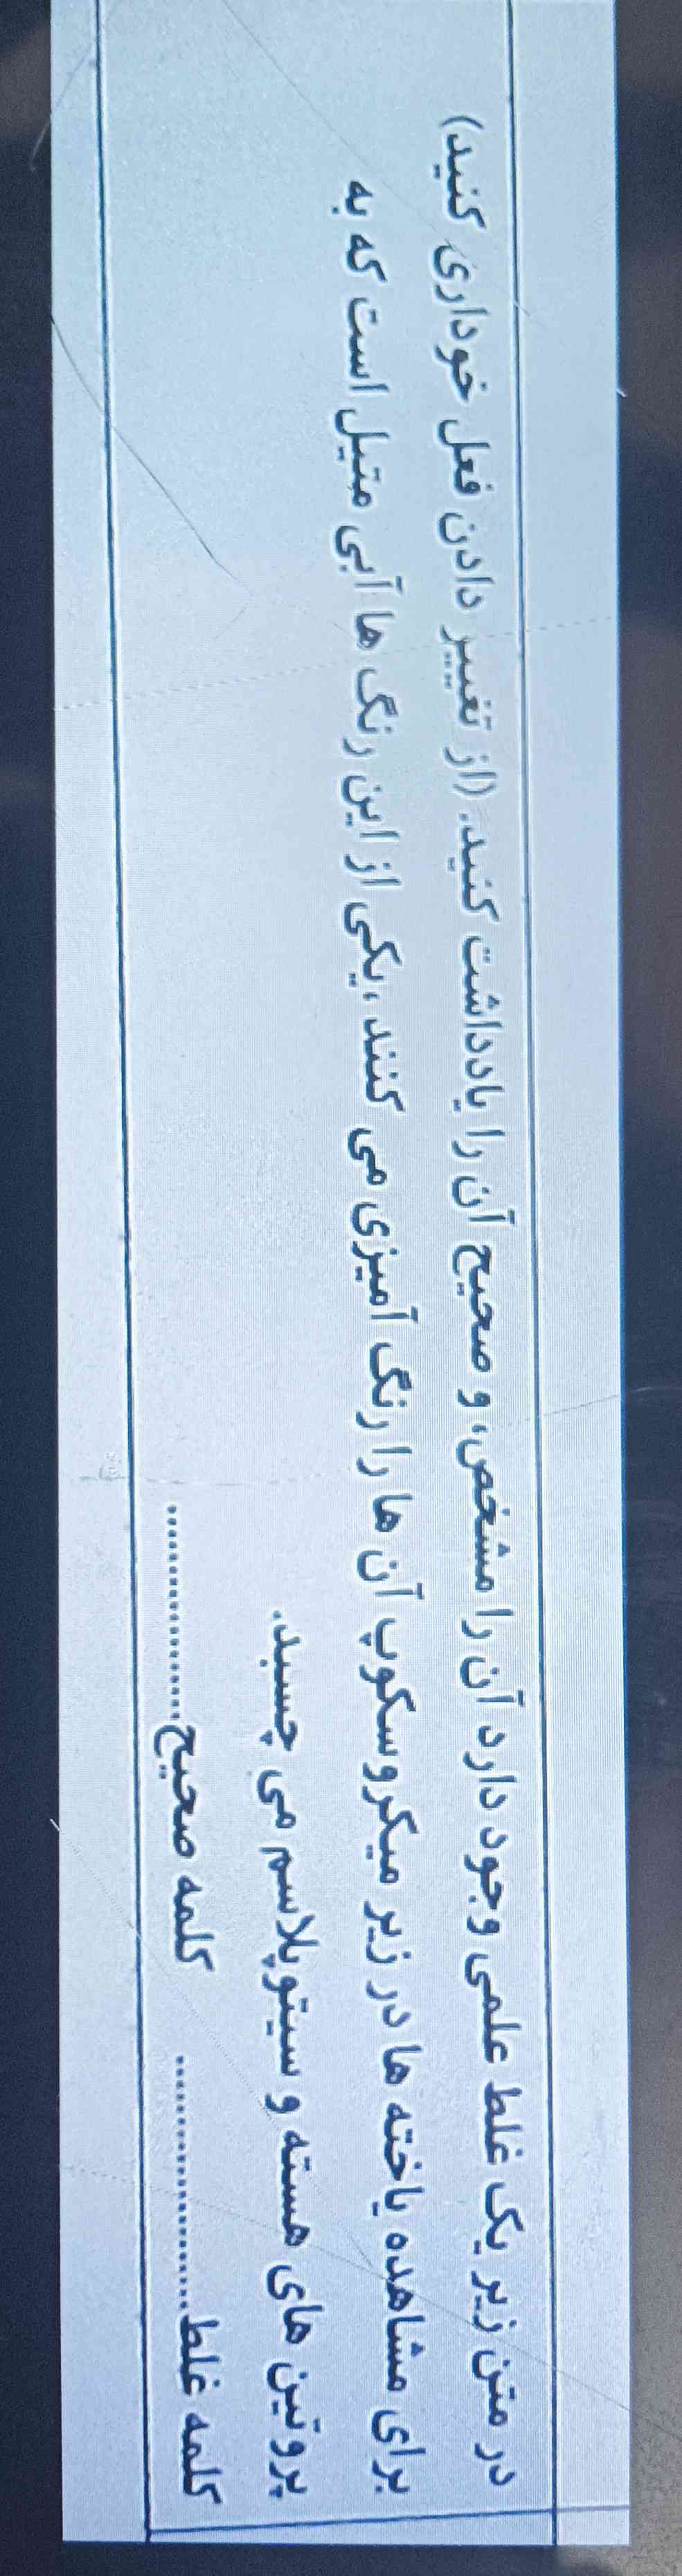 در متن زیر یک غلط علمی وجود دارد آن را مشخص، و صحیح آن را یادداشت کنید. (از تغییر دادن فعل خوداری کنید)
برای مشاهده یاخته ها در زیر میکروسکوپ آن ها را رنگ آمیزی می کنند، یکی از این رنگ ها آبی متیل است که به
پروتین های هسته و سیتوپلاسم می چسبد.
کلمه غلط.................... کلمه صحیح....................